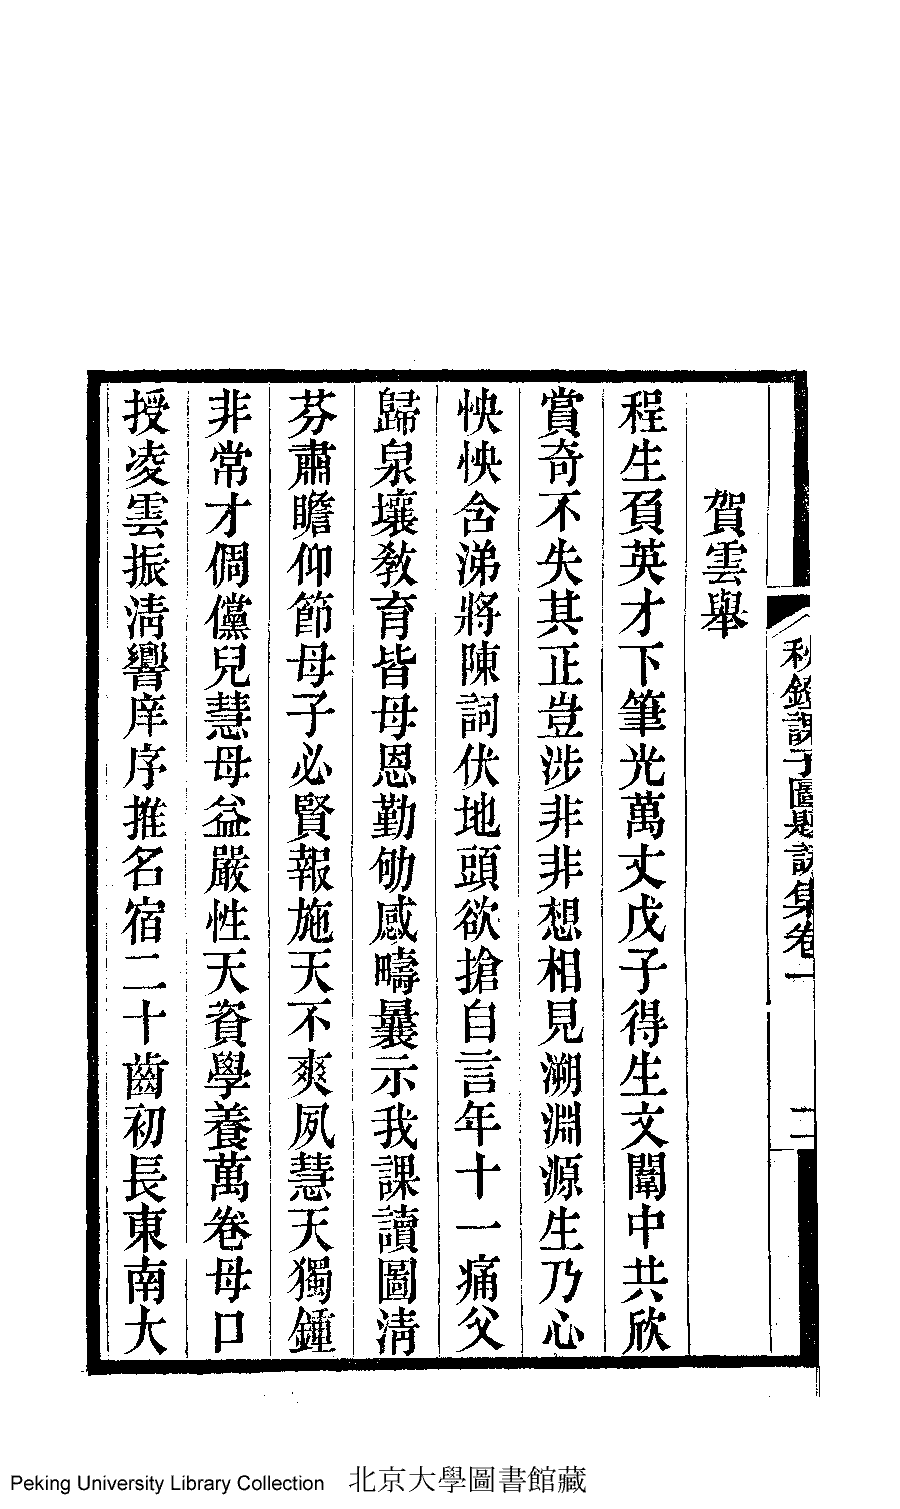 秋鐙課子圖題詞集卷一
二
賀雲舉
程生負英才下筆光萬丈戊子得生文闈中共欣
賞奇不失其正豈涉非非想相見溯淵源生乃心
怏怏含涕將陳詞伏地頭欲搶自言年十一痛父
歸泉壤敎育皆母恩勤劬感疇曩示我課讀圖清
芬肅瞻仰節母子必賢報施天不爽夙慧天獨鍾
非常才倜儻兒慧母益嚴性天資學養萬卷母口
授凌雲振清響庠序推名宿二十齒初長東南大
Peking University Library Collection 北京大學圖書館藏